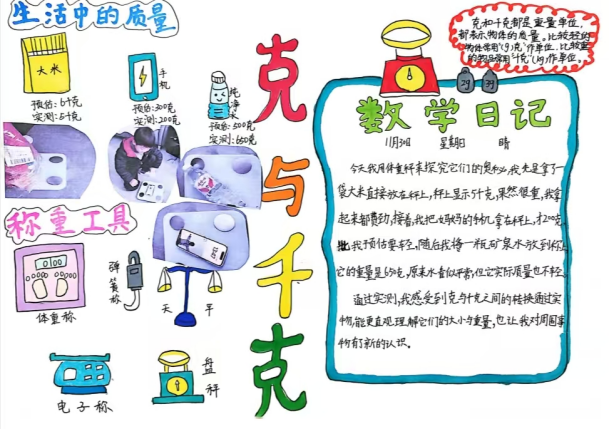 生活中的质量
大米
预估:6千克
实测:5千克
手机
预估:300克
实测:200克
纯净水
预估:500克
实测:650克
称重工具
体重称
弹簧称
天平
电子称
盘秤
克与千克
克和千克都是重量单位,
都表示物体的质量。比较轻的
物体常用"(g)克"作单位,比较重
的物品常用"千克"(kg)作单位。
数学日记
星期日 晴
今天我用体重秤来探究它们的奥秘,我先是拿了一
袋大米直接放在秤上,秤上显示5千克,果然很重,我拿
起来都费劲,接着,我把妈妈的手机拿在秤上,才200克,
比我预估要轻。随后我将一瓶矿泉水放到秤上,
它的重量是650克,原来水看似平常,但它实际质量也不轻。
通过实测,我感受到克与千克之间的转换通过实
物,能更直观理解它们的大小与重量,也让我对周围事
物有了新的认识。